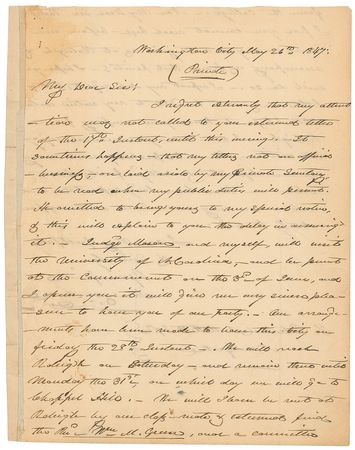 Washington City May 26th 1847.
(Private)
My Dear Sir:
I regret sincerely that my atten
-tion was not called to your esteemed letter
of the 17th Instant, until this evening. It
sometimes happens - that my letters not on official
business, are laid aside by my private Secretary
to be read when my public duties will permit.
He omitted to bring yours to my special notice,
& this will explain to you the delay in answering
it. - Judge Mason and myself will visit
the University of N. Carolina, and be present
at the Commencement on the 3rd of June, and
I assure you it will give me very sincere plea-
sure to have you of our party. - Our arrange-
ments have been made to leave this City on
friday the 28th Instant. - We will reach
Raleigh on Saturday - and remain there until
Monday the 31st, on which day we will go to
Chappel Hill. - We will I learn be met at
Raleigh by our class-mate & esteemed friend
the Revd. Wm. M. Green, and a committee